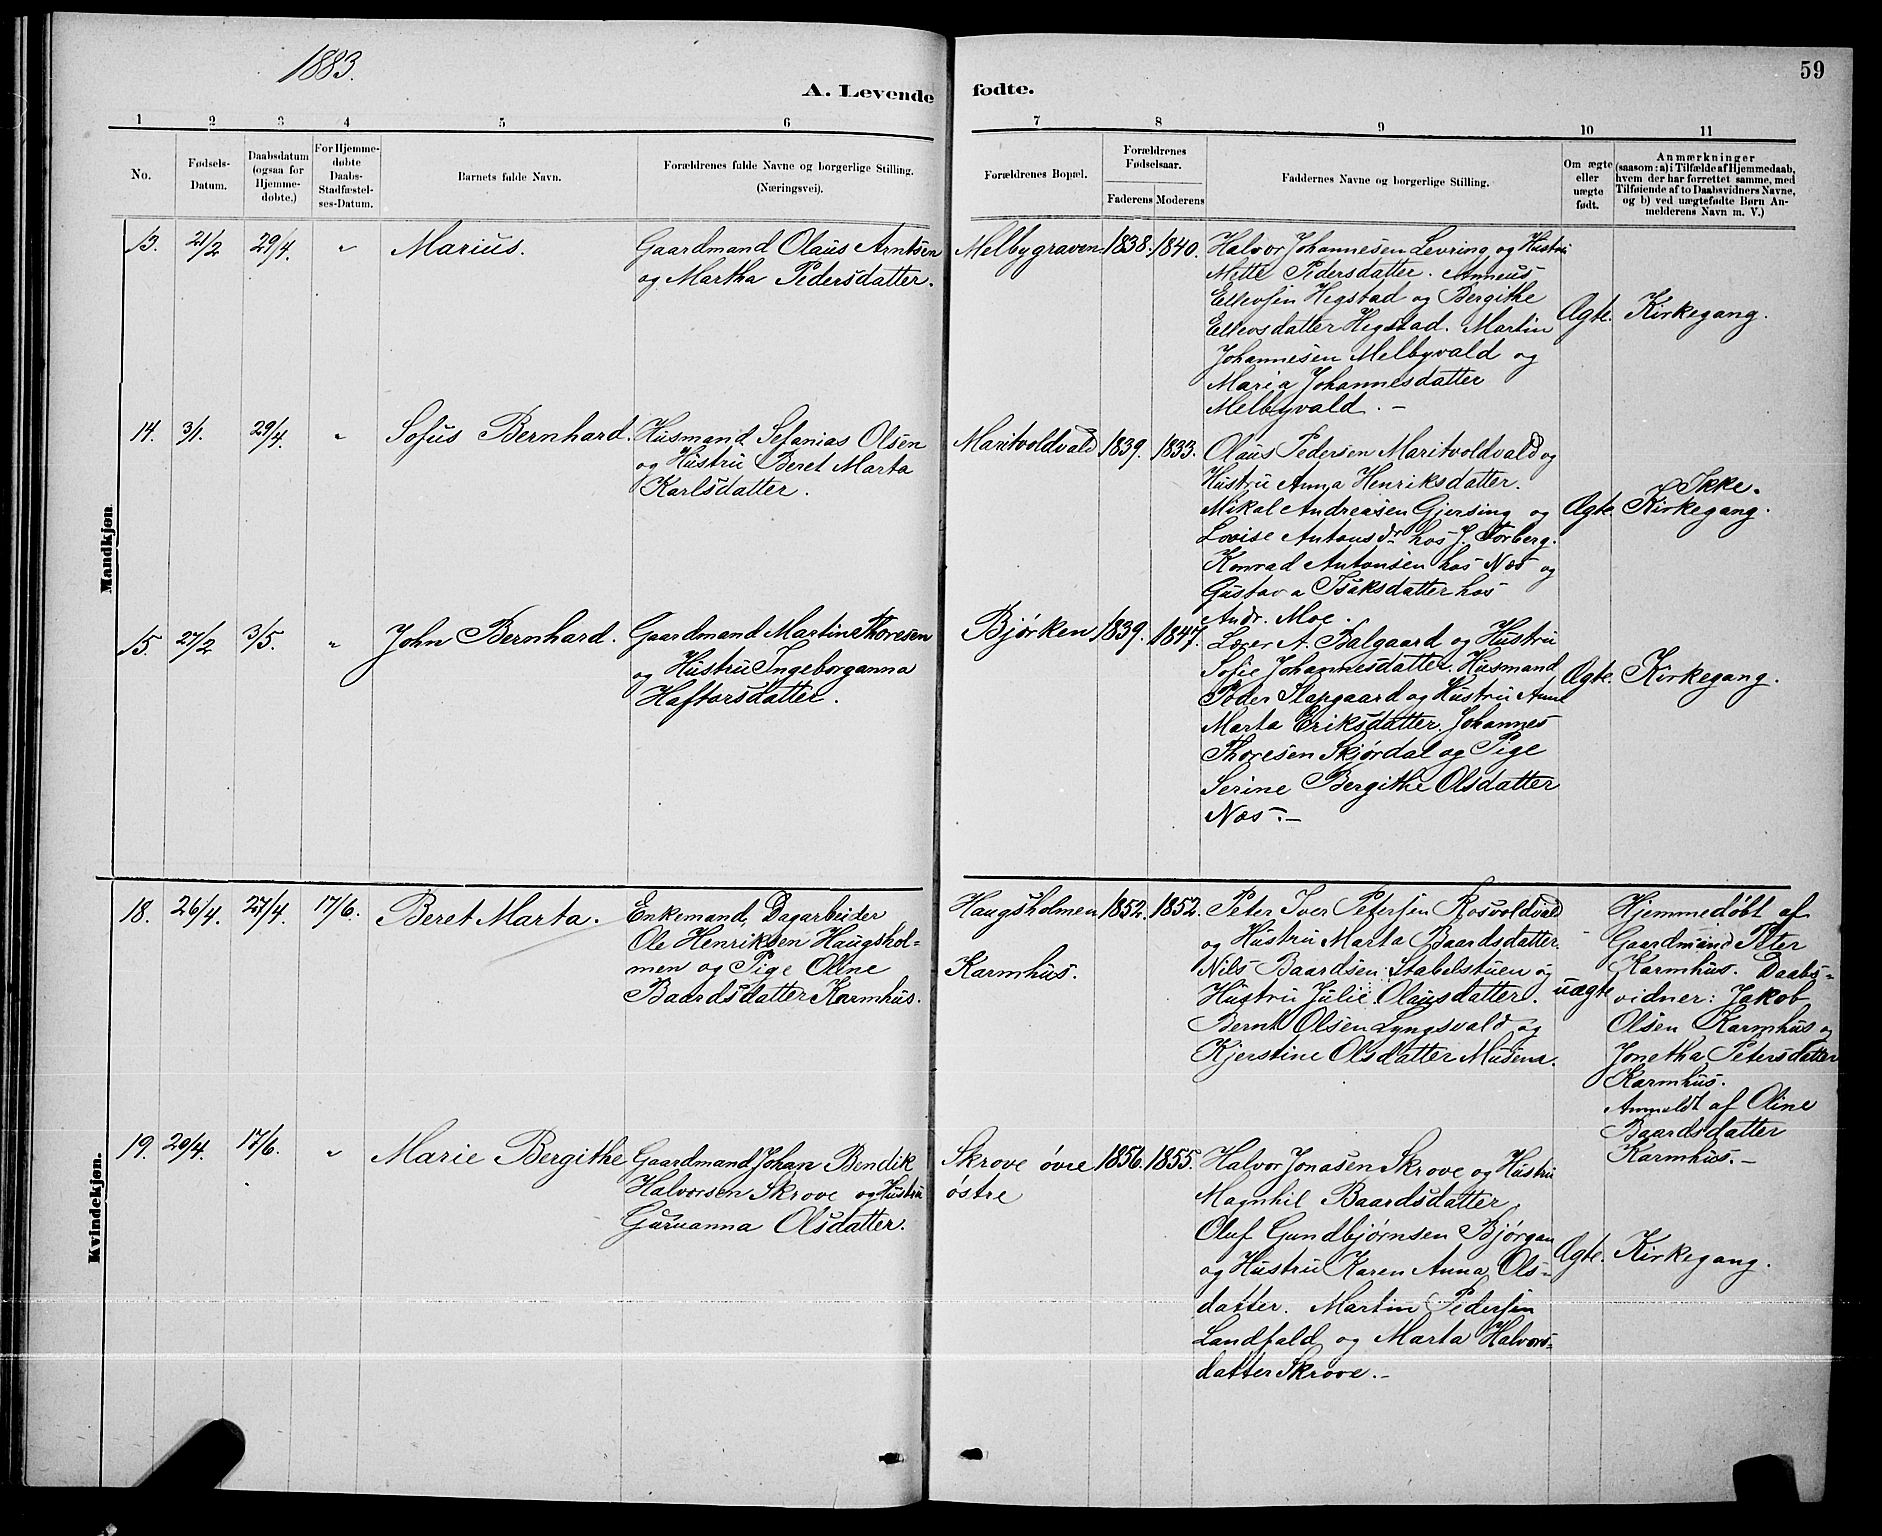 1883.
59
A. Levende fødte.
1 2 3 4 5 6 7 8 9 10 11
No.
Fødsels-
Datum.
Daabsdatum
(ogsaa for
Hjemme-
døbte.)
For Hjemme-
døbte
Daabs-
Stadfæstel-
ses-Datum.
Barnets fulde Navn.
Forældrenes fulde Navne og borgerlige Stilling.
(Næringsvei).
Forældrenes Bopæl.
Forældrenes
Fødselsaar.
Faderens Moderens
Faddernes Navne og borgerlige Stilling.
Om ægte
eller
uægte
født.
Anmærkninger
(saasom: a) i Tilfælde af Hjemmedaab,
hvem der har forrettet samme, med
Tilføiende af to Daabsvidners Navne,
og b) ved uægtefødte Børn An-
melderens Navn m. V.)
Mandkjøn.
13. 21/2 29/4. " Marius.
Gaardmand Olaus Arntsen
og Martha Pedersdatter.
Melbygraven 1838. 1840.
Halvor Johannesen Levring og Hustru
Mette Pedersdatter. Anneus
Ellevsen Hegstad og Bergithe
Ellevsdatter Hegstad. Martin
Johannesen Melbyvald og
Maria Johannesdatter
Melbyvald. –
Ægte. Kirkegang.
14. 3/1. 29/4. " Sofus Bernhard.
Husmand Sefanias Olsen
og Hustru Beret Marta
Karlsdatter.
Maritvoldvald 1839. 1833.
Olaus Pedersen Maritvoldvald og
Hustru Anna Henriksdatter.
Mikal Andreasen Gjersing og
Lovise Antonsdr hos J. Forberg.
Konrad Antonsen hos Næs og
Gustava Isaksdatter hos
Andr. Moe.
Ægte.
Ikke.
Kirkegang.
15. 27/2 3/5. " John Bernhard.
Gaardmand Martin Thoresen
og Hustru Ingeborganna
Haftorsdatter.
Bjørken 1839. 1847.
Lærer A. Balgaard og Hustru
Sofie Johannesdatter. Husmand
Peder Slapgaard og Hustru Anne
Marta Eriksdatter. Johannes
Thoresen Skjørdal og Pige
Serine Bergithe Olsdatter
Næs. –
Ægte. Kirkegang.
Kvindekjøn.
18. 26/4. 27/4. 17/6. Beret Marta.
Enkemand, Dagarbeider
Ole Henriksen Haugshol-
men og Pige Oline
Baardsdatter Karmhus.
Haugsholmen 1852. 1852.
Karmhus.
Peter Iver Petersen Rosvoldvald
og Hustru Marta Baardsdatter.
Nils Baardsen Stabelstuen og
Hustru Julie Olausdatter.
Bernt Olsen Lyngsvald og
Kjerstine Olsdatter
uægte
Hjemmedøbt af
Gaardmand Peter
Karmhus. Daabs-
vidner: Jakob
Olsen Karmhus og
Jonetha Petersdatter
Karmhus.
Anmeldt af Oline
Baardsdatter
Karmhus. –
19. 20/4. 17/6. " Marie Bergithe
Gaardmand Johan Bendik
Halvorsen Skrove og Hustru
Guruanna Olsdatter.
Skrove øvre 1856. 1855.
østre
Halvor Jonasen Skrove og Hustru
Magnhil Baardsdatter
Oluf Gundbjørnsen Bjørgan
og Hustru Karen Anna Ols-
datter. Martin Pedersen
Landfald og Marta Halvors-
datter Skrove. –
Ægte. Kirkegang.